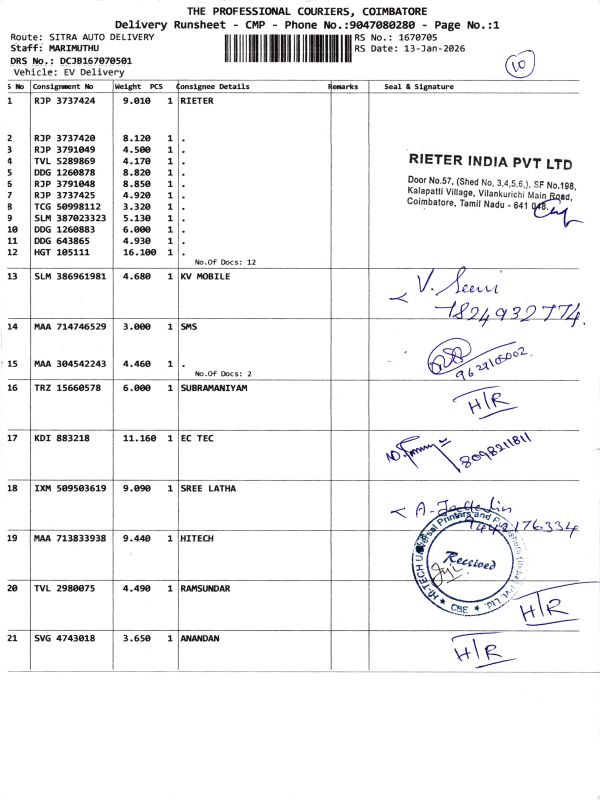 THE PROFESSIONAL COURIERS, COIMBATORE
Delivery Runsheet - CMP - Phone No.:9047080280 - Page No.:1
Route: SITRA AUTO DELIVERY RS No.: 1670705
Staff: MARIMUTHU RS Date: 13-Jan-2026
DRS No.: DCJB167070501
Vehicle: EV Delivery
10
S No Consignment No Weight PCS Consignee Details Remarks Seal & Signature
1 RJP 3737424 9.010 1 RIETER
2 RJP 3737420 8.120 1 .
3 RJP 3791049 4.500 1 .
4 TVL 5289869 4.170 1 .
5 DDG 1260878 8.820 1 .
6 RJP 3791048 8.850 1 .
7 RJP 3737425 4.920 1 .
8 TCG 50998112 3.320 1 .
9 SLM 387023323 5.130 1 .
10 DDG 1260883 6.000 1 .
11 DDG 643865 4.930 1 .
12 HGT 105111 16.100 1 .
No.Of Docs: 12
RIETER INDIA PVT LTD
Door No.57, (Shed No, 3,4,5,6,), SF No.198,
Kalapatti Village, Vilankurichi Main Road,
Coimbatore, Tamil Nadu - 641 048.
13 SLM 386961981 4.680 1 KV MOBILE
V.
7824932774.
14 MAA 714746529 3.000 1 SMS
15 MAA 304542243 4.460 1 .
No.Of Docs: 2
16 TRZ 15660578 6.000 1 SUBRAMANIYAM
H/R
17 KDI 883218 11.160 1 EC TEC
8098211811
18 IXM 509503619 9.090 1 SREE LATHA
A.
9442176334
19 MAA 713833938 9.440 1 HITECH
HI-TECH Universal Printers and Publishers
Received
CBE
20 TVL 2980075 4.490 1 RAMSUNDAR
H/R
21 SVG 4743018 3.650 1 ANANDAN
H/R